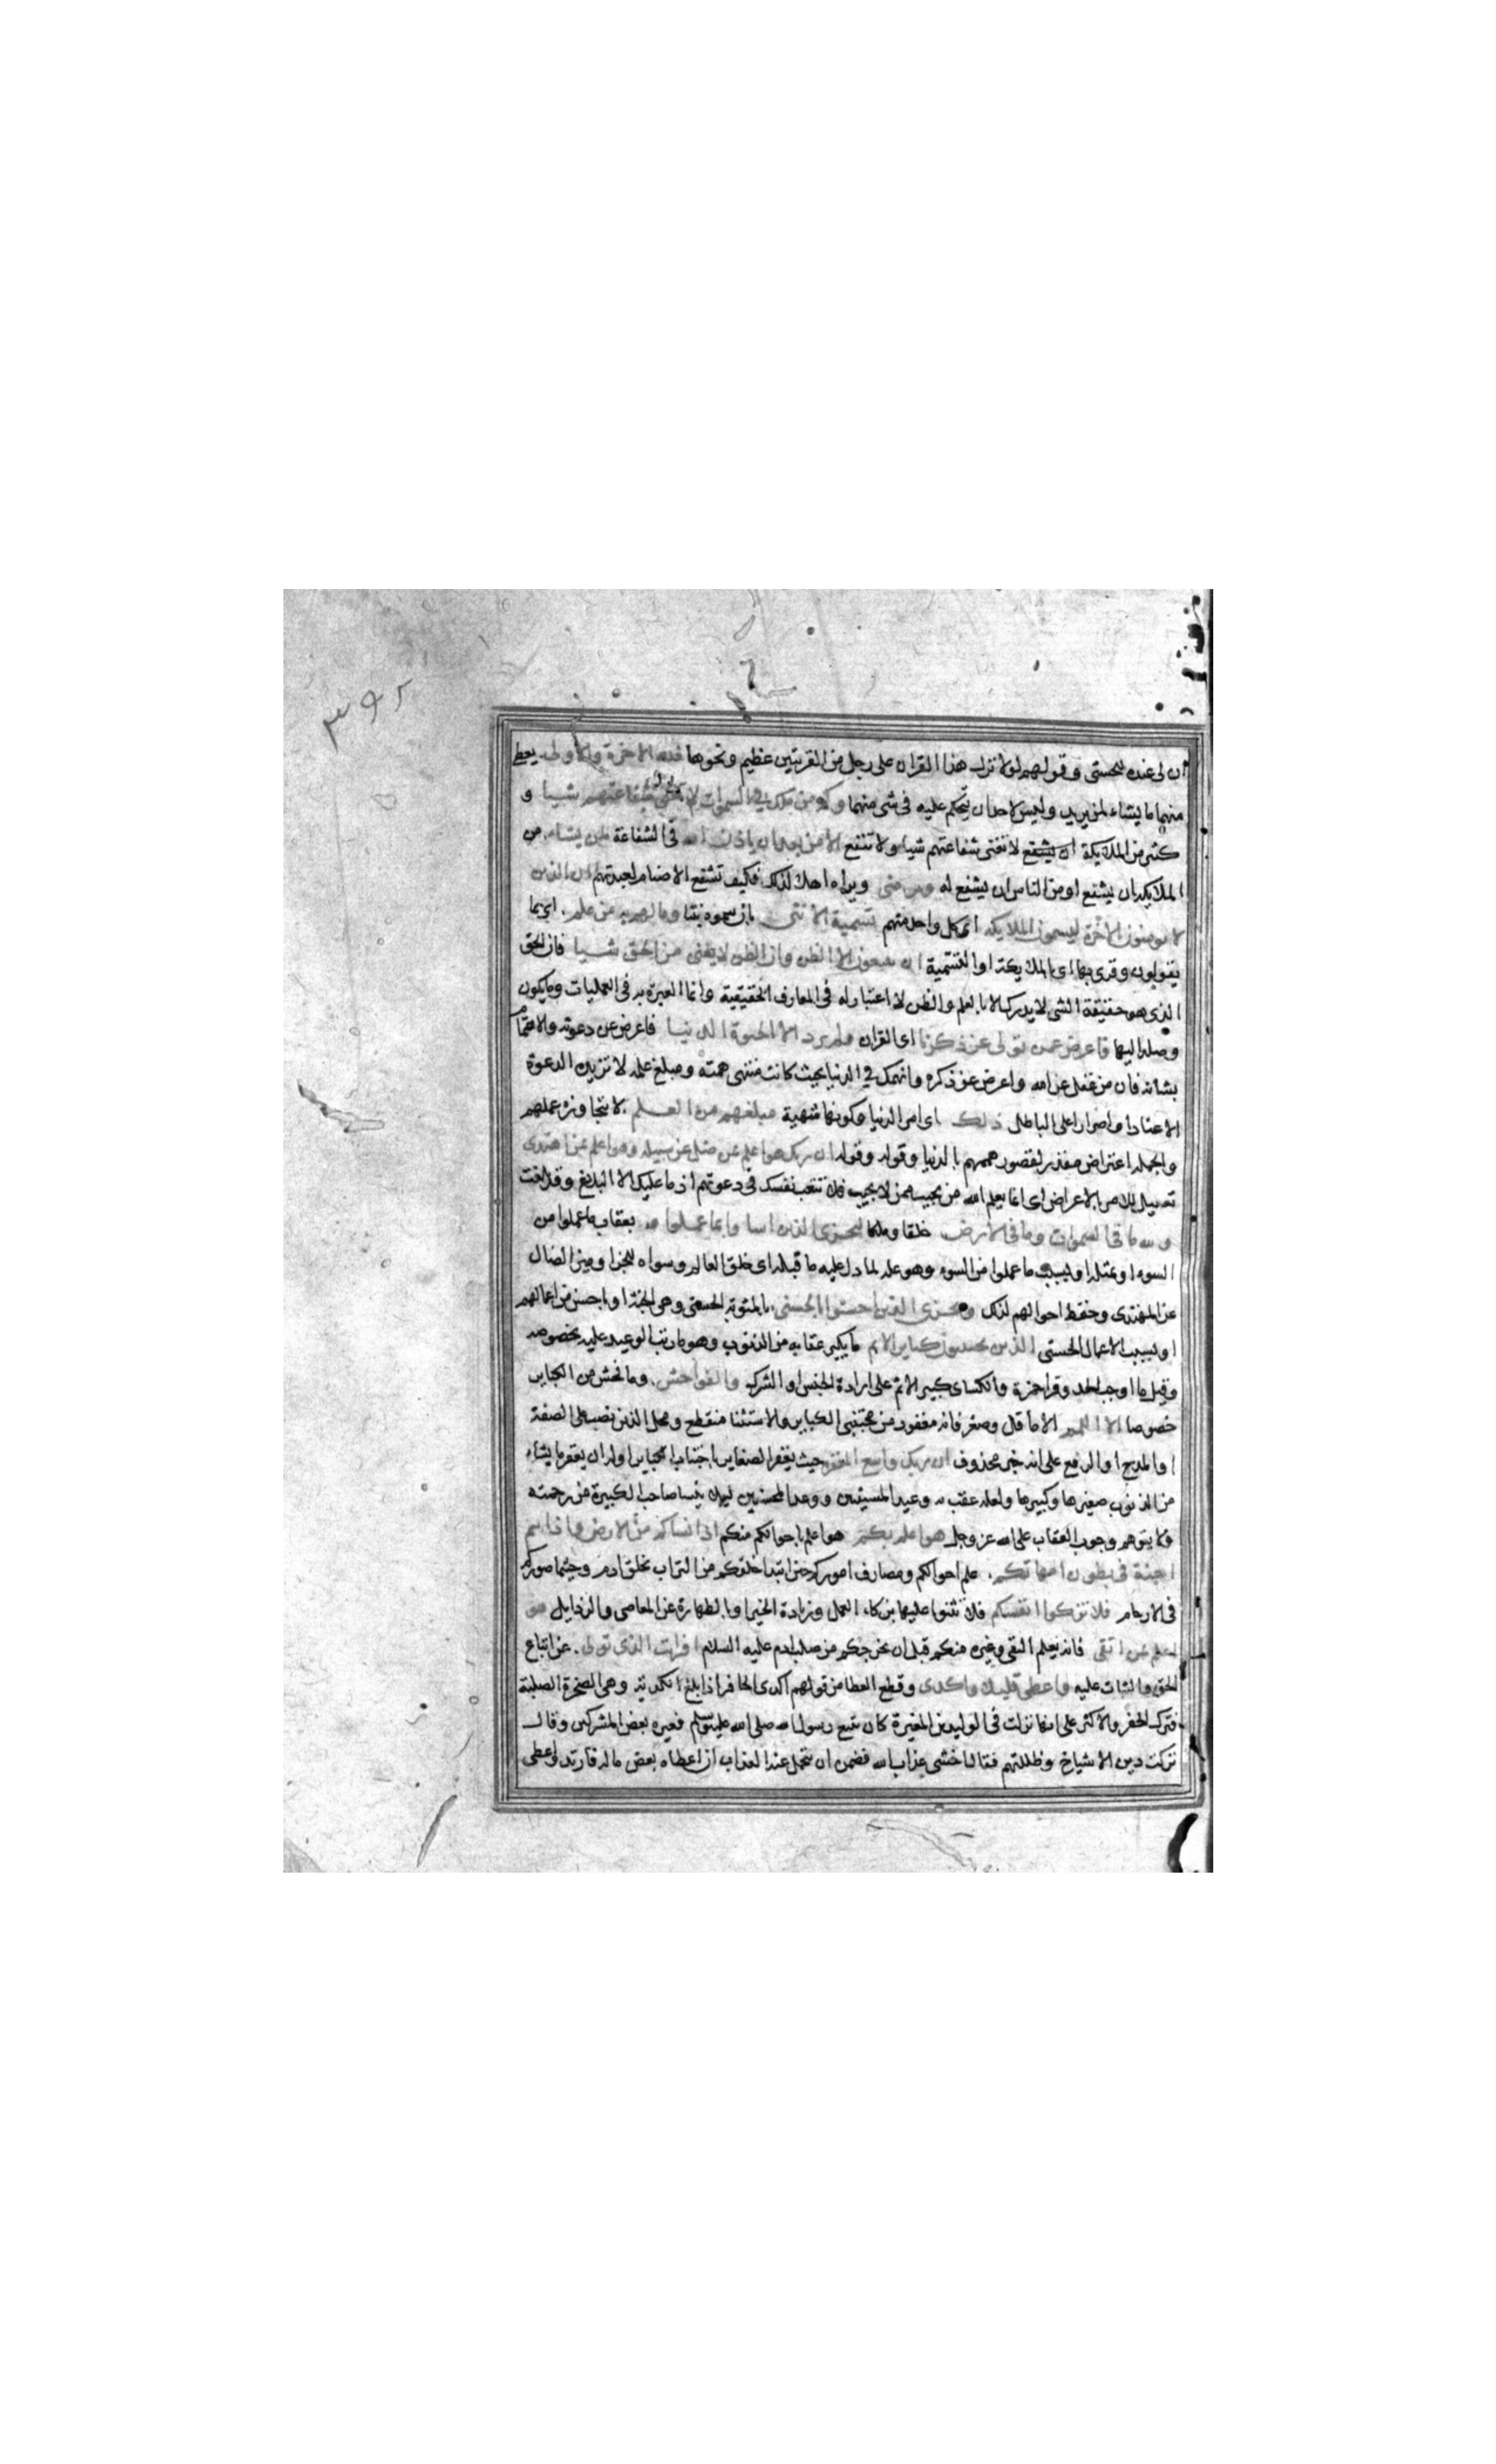 ٣٩٢
ان لى عنده للحسنى وقولهم لولا نزل هذا القران على رجل من القريتين عظيم ونحوها فلله الاخرة والاولى يعطى
منهما ما يشاء لمن يريد وليس لاحد ان يتحكم عليه فى شى منهما وكم من ملك فى السموات لا تغنى شفاعتهم شيا و
كثير من الملايكة ان يشفع لا تغنى شفاعتهم شيا ولا تنفع الا من بعد ان ياذن الله فى الشفاعة لمن يشاء من
الملايكه ان يشفع او من الناس ان يشفع له ويرضى ويراه اهلا لذلك فكيف تشفع الاصنام لعبدتهم ان الذين
لا يومنون بالاخرة ليسمون الملايكه اى كل واحد منهم تسمية الانثى بان سموه بنتا وما لهم به من علم اى بما
يقولون وقرى بها اى بالملايكة او التسمية ان يتبعون الا الظن وان الظن لا يغنى من الحق شيا فان الحق
الذى هو حقيقة الشى لا يدرك الا بالعلم والظن لا اعتبار له فى المعارف الحقيقية وانما العبرة به فى العمليات وما يكون
وصله اليها فاعرض عمن تولى عن ذكرنا اى القران ولم يرد الا الحيوة الدنيا فاعرض عن دعوته والاهتمام
بشانه فان من غفل عن الله واعرض عن ذكره وانهمك فى الدنيا بحيث كانت منتهى همته ومبلغ علمه لا تزيده الدعوة
الا عنادا واصرارا على الباطل ذلك اى امر الدنيا وكونها شهية مبلغهم من العلم لا يتجاوزه علمهم
والجمله اعتراض مقرر لقصور هممهم بالدنيا وقوله وقوله ان ربك هو اعلم بمن ضل عن سبيله وهو اعلم بمن اهتدى
تعليل للامر بالاعراض اى انما يعلم الله من يجيب ممن لا يجيب فلا تتعب نفسك فى دعوتهم اذ ما عليك الا البلاغ وقد بلغت
ولله ما فى السموات وما فى الارض خلقا وملكا ليجزى الذين اساوا بما عملوا بعقاب ما عملوا من
السوء او بمثله او بسبب ما عملوا من السوء وهو علة لما دل عليه ما قبله اى خلق العالم وسواه للجزا وميز الضال
عن المهتدى وحفظ احوالهم لذلك ويجزى الذين احسنوا بالحسنى بالمثوبة الحسنى وهى الجنة او باحسن من اعمالهم
او بسبب الاعمال الحسنى الذين يجتنبون كباير الاثم ما يكبر عقابه من الذنوب وهو ما رتب الوعيد عليه بخصوصه
وقيل ما اوجب الحد وقرا حمزة والكساى كبير الاثم على ارادة الجنس او الشرك والفواحش وما فحش من الكباير
خصوصا الا اللمم الا ما قل وصغر فانه مغفور من مجتنبى الكباير والاستثنا منقطع ومحل الذين نصب على الصفة
او المدح او الرفع على انه خبر محذوف ان ربك واسع المغفرة حيث يغفر الصغاير باجتناب الكباير اوله ان يغفر ما يشاء
من الذنوب صغيرها وكبيرها ولعله عقب به وعيد المسيئين ووعد المحسنين ليلا ييئس صاحب الكبيرة من رحمته
ولا يتوهم وجوب العقاب على الله عز وجل هو اعلم بكم هو اعلم باحوالكم منكم اذ انشاكم من الارض واذ انتم
اجنة فى بطون امهاتكم علم احوالكم ومصارف اموركم حين ابتدا خلقكم من التراب بخلق ادم وحيثما صوركم
فى الارحام فلا تزكوا انفسكم فلا تثنوا عليها بزكاء العمل وزيادة الخير او بالطهارة عن المعاصى والرذايل هو
اعلم بمن اتقى فانه يعلم التقى وغيره منكم قبل ان يخرجكم من صلب ادم عليه السلام افرايت الذى تولى عن اتباع
الحق والثبات عليه واعطى قليلا واكدى وقطع العطا من قولهم اكدى الحافر اذا بلغ الكدية وهى الصخرة الصلبة
فترك الحفر والاكثر على انها نزلت فى الوليد بن المغيرة كان يتبع رسول الله صلى الله عليه وسلم فعيره بعض المشركين وقال
تركت دين الاشياخ وظللتهم فقال اخشى عذاب الله فضمن ان يتحمل عنه العذاب ان اعطاه بعض ماله فارتد واعطى